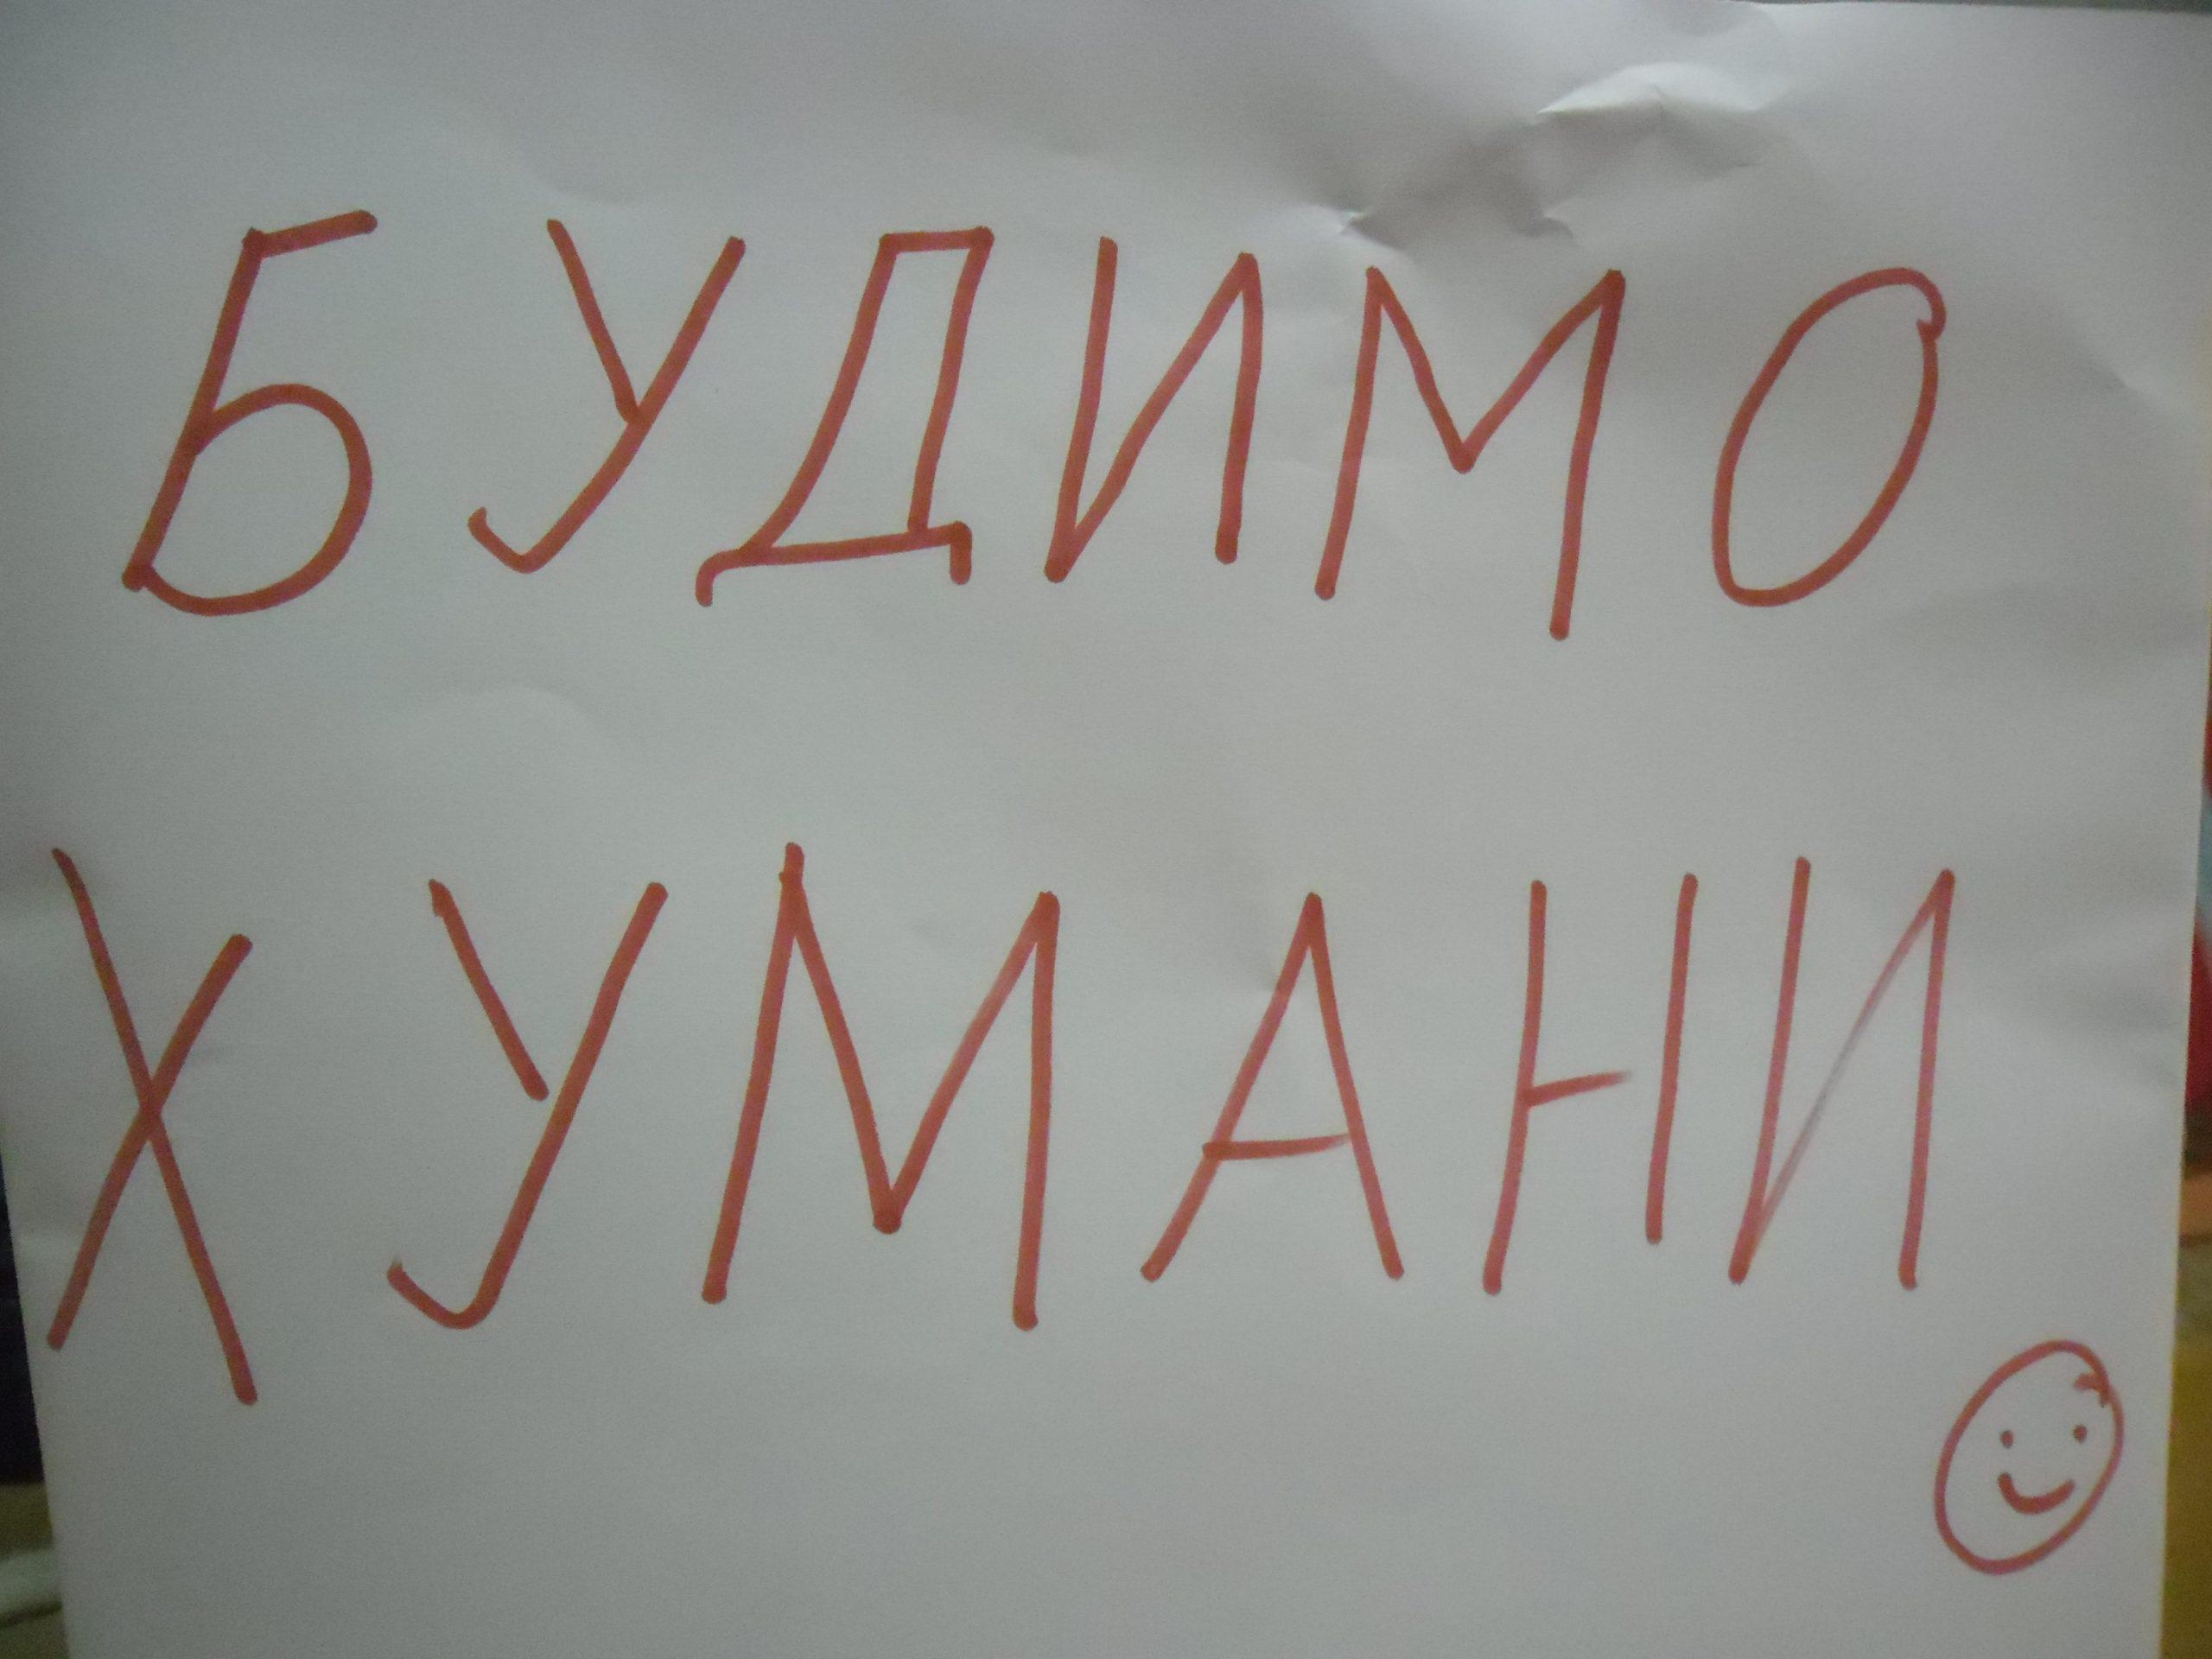 БУДИМО
ХУМАНИ